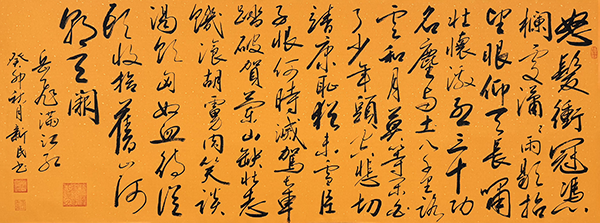 怒髮衝冠憑
欄處瀟瀟雨歇抬
望眼仰天長嘯
壯懷激烈三十功
名塵与土八千里路
雲和月莫等閑白
了少年頭空悲切
靖康恥猶未雪臣
子恨何時滅駕長車
踏破賀蘭山缺壯志
饑湌胡虜肉笑談
渴飲匈奴血待從
頭收拾舊山河
朝天闕
岳飛滿江紅
癸卯秋月新民書